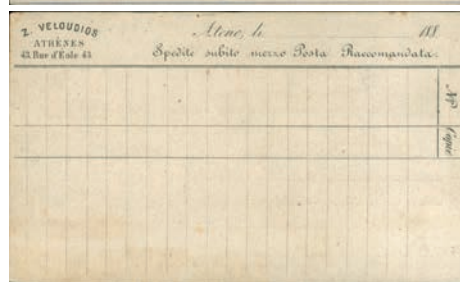 Z. VELOUDIOS
ATHÈNES
43 Rue d'Eole 43
Atene, li 188
Spedite subito mezzo Posta Raccomandata:
Nº
Copie